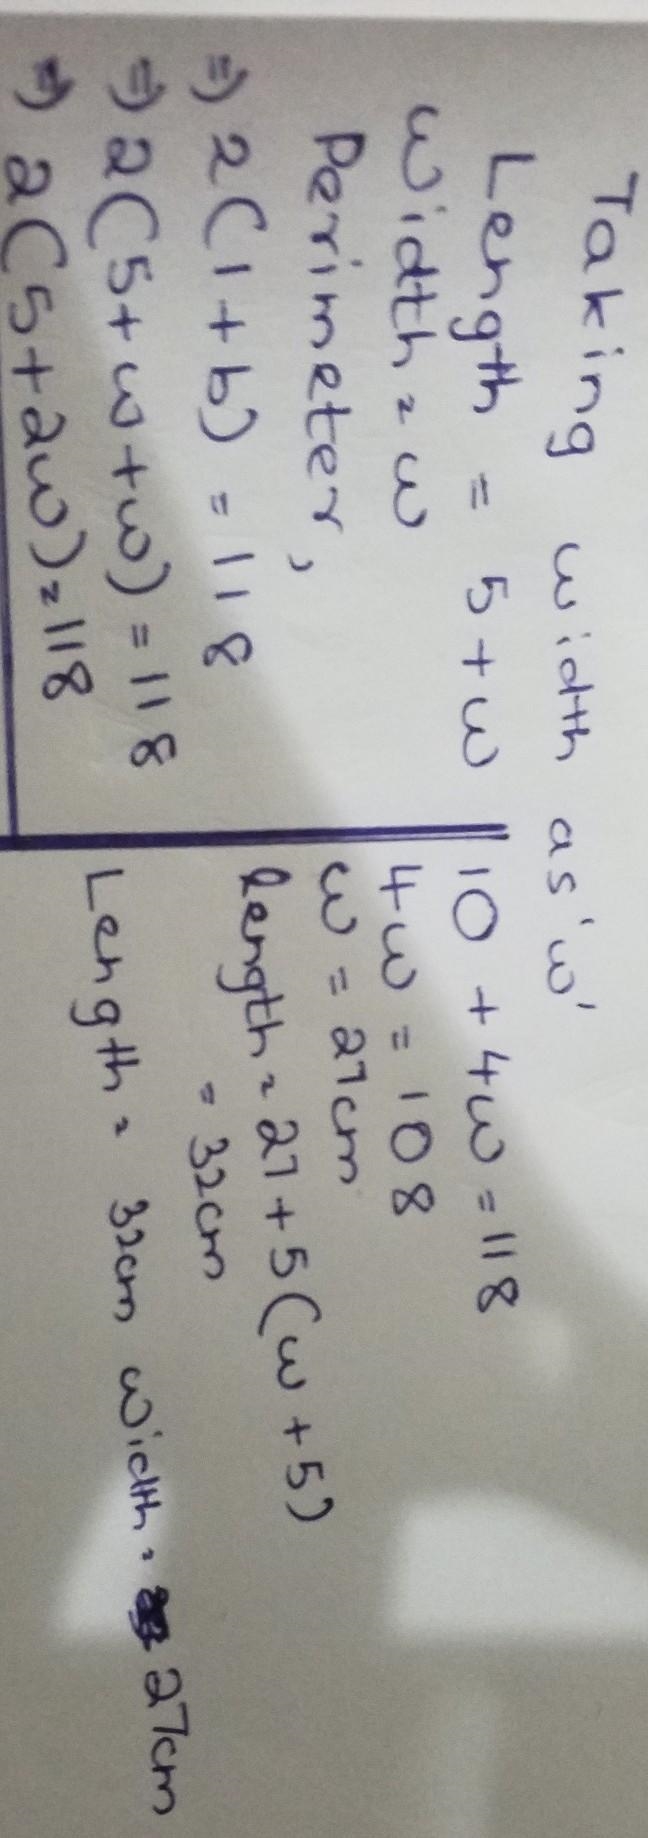 Taking width as 'w'
Length = 5+w
Width = w
Perimeter,
⇒ 2(l+b) = 118
⇒ 2(5+w+w) = 118
⇒ 2(5+2w) = 118
10 + 4w = 118
4w = 108
w = 27cm
length = 27+5 (w+5)
= 32cm
Length = 32cm width = 27cm